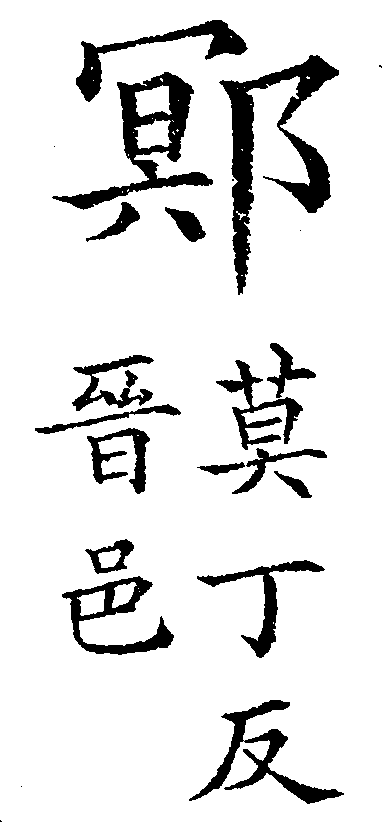 鄍
莫丁反
晉邑